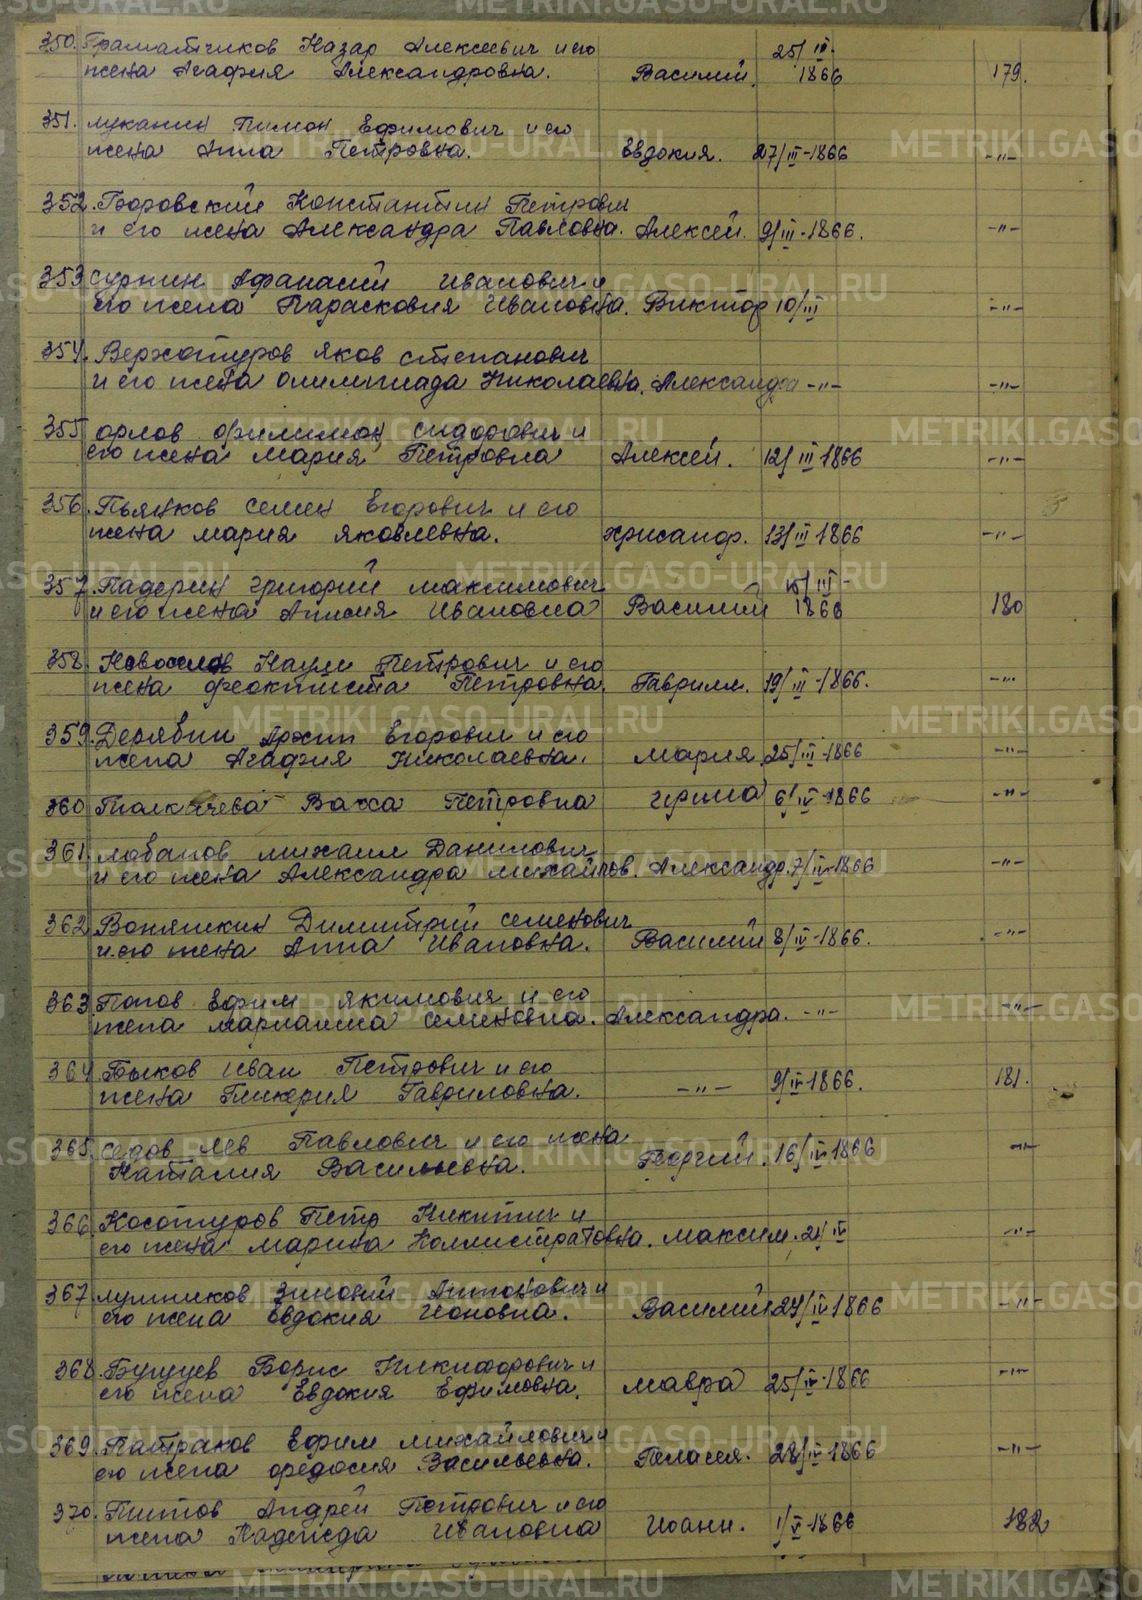 350. Граматчиков Назар Алексеевич и его 25/III-
жена Агафия Александровна. Василий. 1866 179.
351. Луканин Пимон Ефимович и его
жена Анна Петровна. Евдокия. 27/III-1866 -"-
352. Боровский Константин Петрович
и его жена Александра Павловна. Алексей. 9/III-1866. -"-
353 Сурнин Афанасий Иванович и
его жена Парасковия Ивановна. Виктор 10/III -"-
354. Верхотуров Яков Степанович
и его жена Олимпиада Николаевна. Александра -"- -"-
355 Орлов Филимон Сидорович и
его жена Мария Петровна Алексей. 12/III 1866 -"-
356. Пьянков Семен Егорович и его
жена Мария Яковлевна. Хрисанф. 13/III 1866 -"-
357. Падерин Григорий Максимович 15/III-
и его жена Анисия Ивановна Василий 1866 180
358. Новоселов Наум Петрович и его
жена Феоктиста Петровна. Гавриил. 19/III-1866. -"-
359. Дерябин Архип Егорович и его
жена Агафия Николаевна. Мария 25/III-1866 -"-
360 Толкачева Васса Петровна Ирина 6/IV-1866 -"-
361. Лобанов Михаил Данилович
и его жена Александра Михайлов. Александр. 7/IV-1866 -"-
362 Воняткин Димитрий Семенович
и его жена Анна Ивановна. Василий 8/IV-1866. -"-
363 Попов Ефим Якимович и его
жена Марианна Семеновна. Александра. -"- -"-
364. Быков Иван Петрович и его
жена Гликерия Гавриловна. -"- 9/IV-1866. 181.
365. Седов Лев Павлович и его жена
Наталия Васильевна. Георгий. 16/IV-1866 -"-
366. Косотуров Петр Никитич и
его жена Марина Каллистратовна. Максим. 21/IV -"-
367 Лушников Зиновий Антонович и
его жена Евдокия Ионовна. Василий 24/IV-1866 -"-
368. Бугуев Борис Никифорович и
его жена Евдокия Ефимовна. Мавра 25/IV-1866 -"-
369. Патраков Ефим Михайлович и
его жена Федосия Васильевна. Геласия. 28/IV-1866 -"-
370. Титов Андрей Петрович и его
жена Надежда Ивановна Иоанн. 1/V-1866 182
METRIKI.GASO-URAL.RU